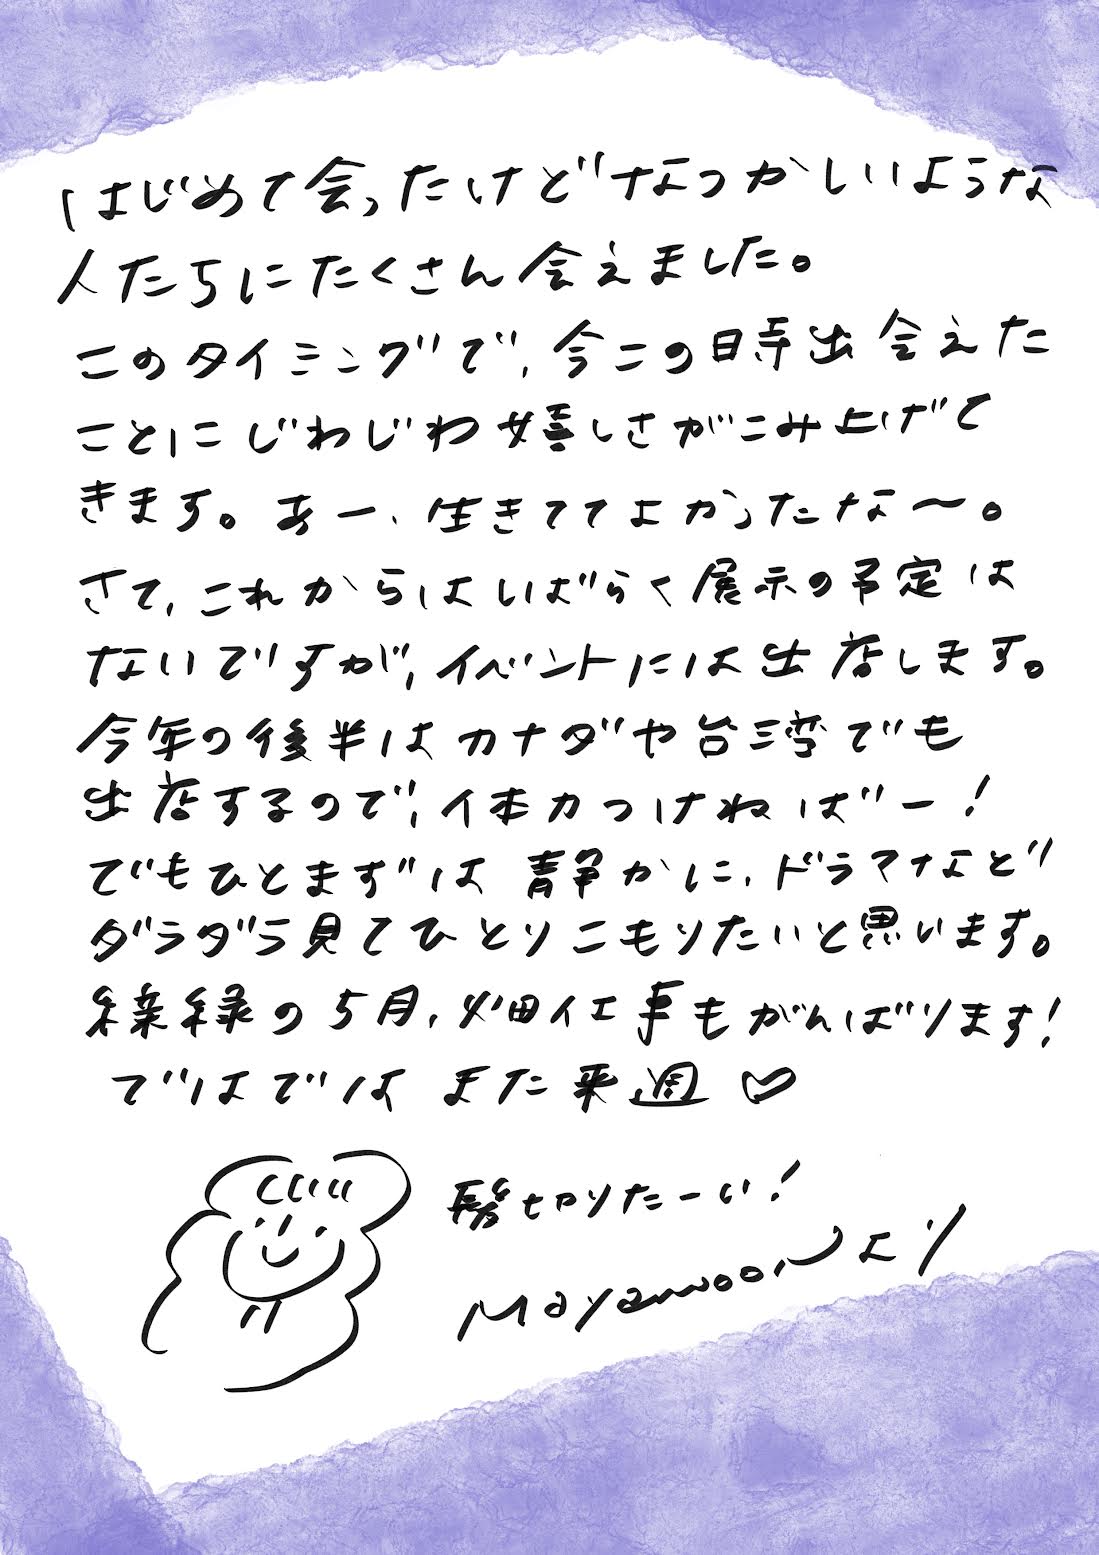 はじめて会ったけどなつかしいような
人たちにたくさん会えました。
このタイミングで、今この時出会えた
ことにじわじわ嬉しさがこみ上げて
きます。あー、生きててよかったな〜。
さて、これからはしばらく展示の予定は
ないですが、イベントには出店します。
今年の後半はカナダや台湾でも
出店するので、体力つけねばー!
でもひとまずは静かに、ドラマなど
ダラダラ見てひとりこもりたいと思います。
新緑の5月、畑仕事もがんばります!
ではでは また来週♡
髪切りたーい!
Mayamoonより